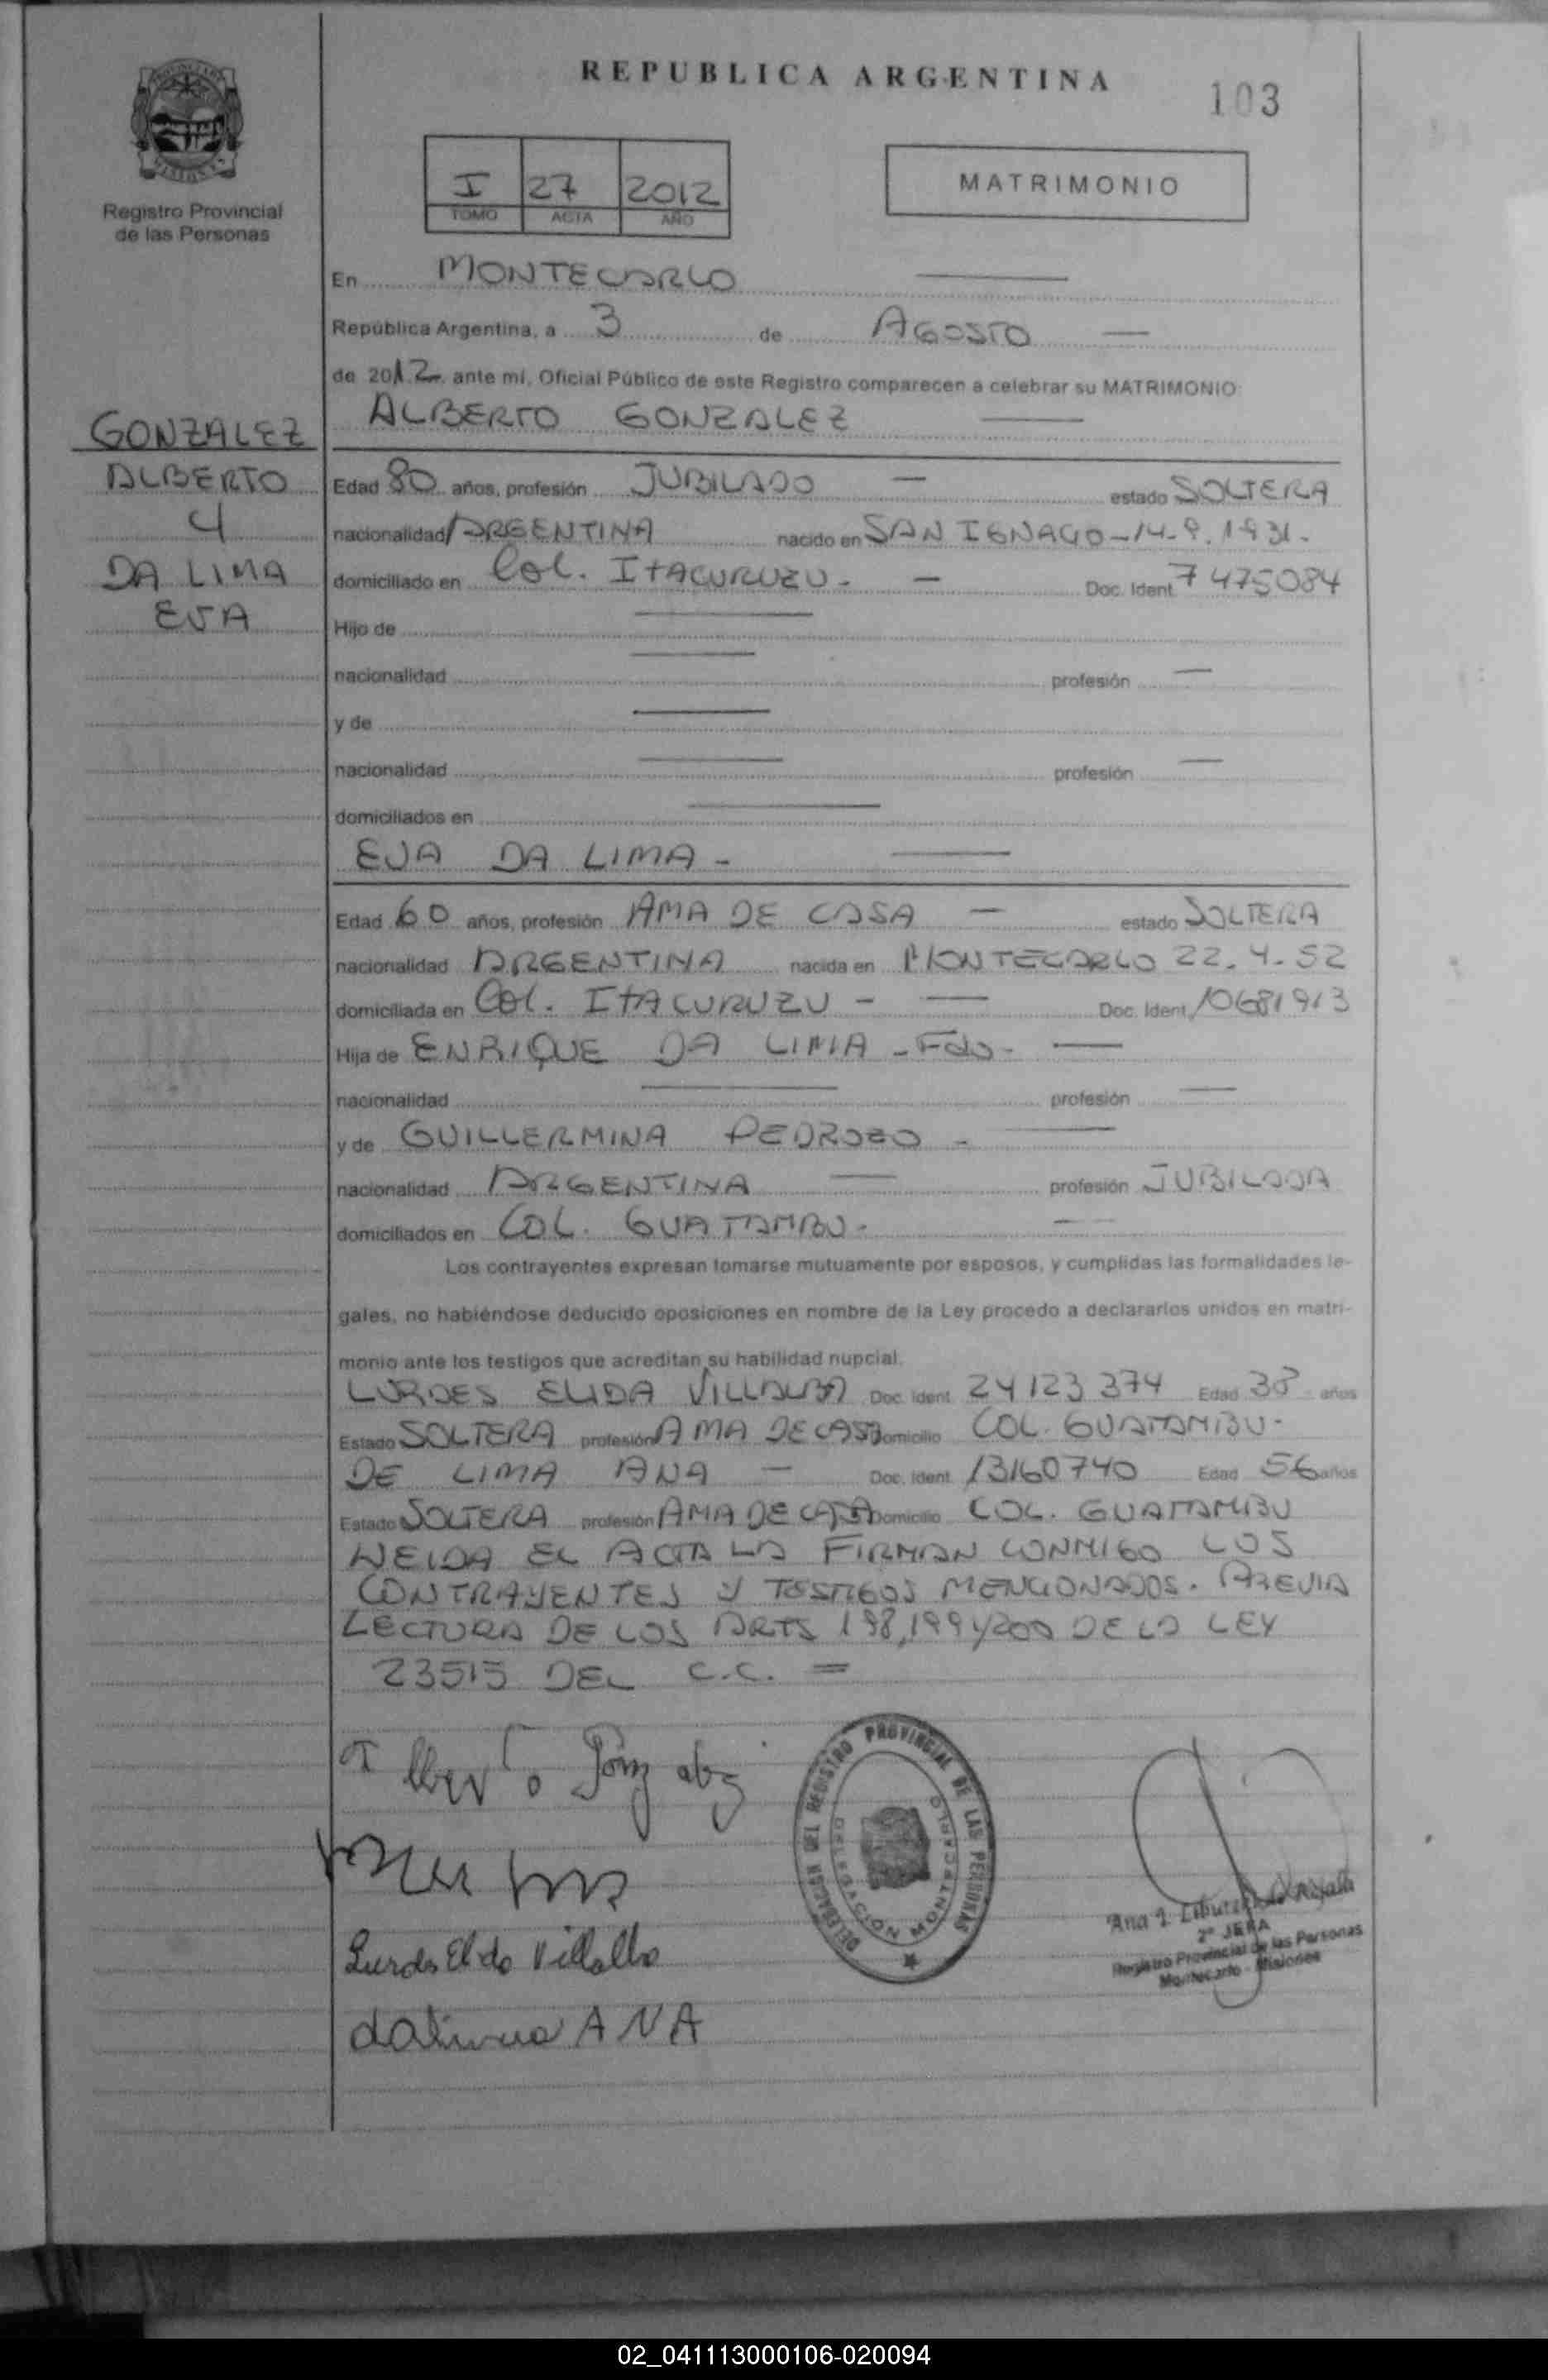 REPUBLICA ARGENTINA
103
Registro Provincial
de las Personas
I 27 2012
TOMO ACTA AÑO
MATRIMONIO
En MONTECARLO
República Argentina, a 3 de AGOSTO
de 2012 ante mí, Oficial Público de este Registro comparecen a celebrar su MATRIMONIO:
ALBERTO GONZALEZ
GONZALEZ
ALBERTO
Y
DA LIMA
EVA
Edad 80 años, profesión JUBILADO — estado SOLTERA
nacionalidad ARGENTINA nacido en SAN IGNACIO - 14-9.1931.
domiciliado en Col. ITACURUZU - — Doc. Ident. 7475084
Hijo de —
nacionalidad — profesión —
y de —
nacionalidad — profesión —
domiciliados en —
EVA DA LIMA - —
Edad 60 años, profesión AMA DE CASA — estado SOLTERA
nacionalidad ARGENTINA nacida en MONTECARLO 22.4.52
domiciliada en Col. ITACURUZU - — Doc. Ident. 10681913
Hija de ENRIQUE DA LIMA - Fdo - —
nacionalidad — profesión —
y de GUILLERMINA PEDROZO - —
nacionalidad ARGENTINA — profesión JUBILADA
domiciliados en COL. GUATAMBU. —
Los contrayentes expresan tomarse mutuamente por esposos, y cumplidas las formalidades le-
gales, no habiéndose deducido oposiciones en nombre de la Ley procedo a declararlos unidos en matri-
monio ante los testigos que acreditan su habilidad nupcial.
LURDES ELIDA VILLALBA Doc. Ident. 24123374 Edad 38 años
Estado SOLTERA profesión AMA DE CASA Domicilio COL. GUATAMBU-
DE LIMA ANA — Doc. Ident. 13160740 Edad 56 años
Estado SOLTERA profesión AMA DE CASA Domicilio COL. GUATAMBU
LEIDA EL ACTA LA FIRMAN CONMIGO LOS
CONTRAYENTES Y TESTIGOS MENCIONADOS. PREVIA
LECTURA DE LOS ARTS 198,199 y 200 DE LA LEY
23515 DEL C.C. =
DELEGACION DEL REGISTRO PROVINCIAL DE LAS PERSONAS
DELEGACION MONTECARLO
Lurdes Elida Villalba
dalima ANA
Ana
2° JEFA
Registro Provincial de las Personas
Montecarlo - Misiones
02_041113000106-020094